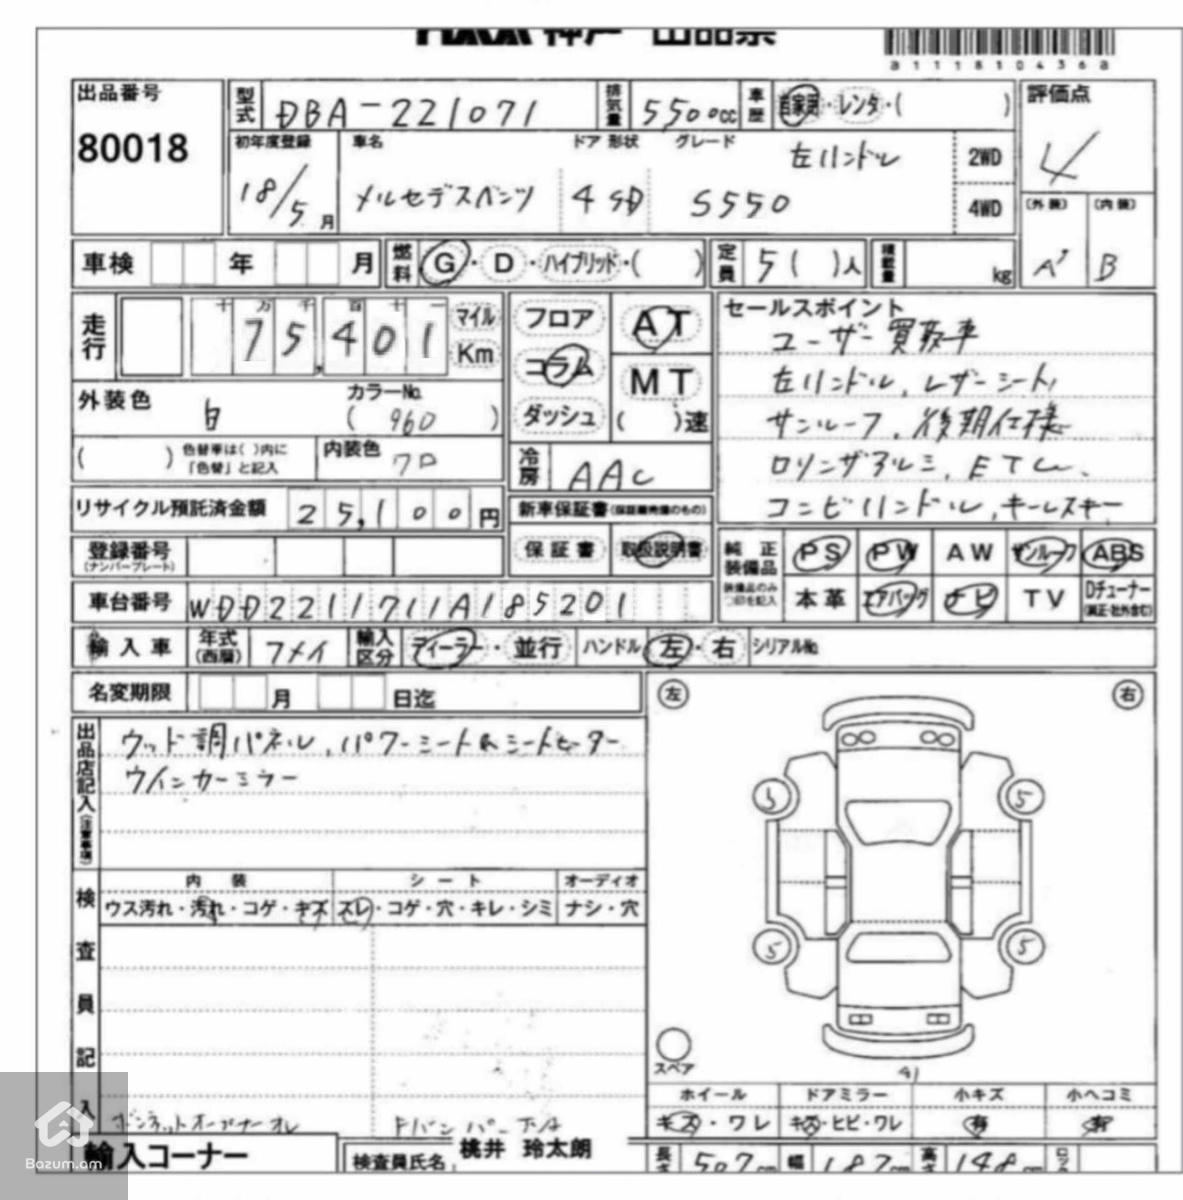 神戸 出品票
出品番号
80018
型式 DBA-221071
排気量 5500cc
車歴 自家用・レンタ・( )
評価点
4
初年度登録 車名 ドア 形状 グレード
18/5月 メルセデスベンツ 4 SD S550 左ハンドル
2WD
4WD
(外装) (内装)
A' B
車検 年 月
燃料 G・D・ハイブリッド・( )
定員 5( )人
積載量 kg
走行 十 万 千 百 十 一
75,401
マイル
Km
外装色 白 カラーNo. (960)
( ) 色替車は( )内に「色替」と記入
内装色 クロ
フロア
コラム
ダッシュ
AT
MT
( )速
冷房 AAC
セールスポイント
ユーザー買取車
左ハンドル、レザーシート、
サンルーフ、後期仕様
ロリンザアルミ、ETC、
コンビハンドル、キーレスキー
リサイクル預託済金額 25,100円
新車保証書(保証継続権のもの)
保証書 取扱説明書
登録番号
(ナンバープレート)
車台番号 WDD2211711A185201
純正装備品
装備品のみ○印を記入
PS PW AW サンルーフ ABS
本革 エアバッグ ナビ TV Dチューナー
(純正・社外含む)
輸入車 年式(西暦) 7メイ 輸入区分 ディーラー・並行 ハンドル 左・右 シリアルNo.
名変期限 月 日迄
出品店記入(注意事項)
ウッド調パネル、パワーシート&シートヒーター
ウインカーミラー
左 右
5 5
5 5
スペア
検査員記入
内装 シート オーディオ
ウス汚れ・汚れ・コゲ・キズ スレ・コゲ・穴・キレ・シミ ナシ・穴
ボンネットオープナーオレ Fバンパー下A
A1
ホイール ドアミラー 小キズ 小ヘコミ
キズ・ワレ キズ・ヒビ・ワレ 有 有
輸入コーナー
検査員氏名 桃井 玲太朗
長さ 507cm 幅 187cm 高さ 148cm
Bazum.am